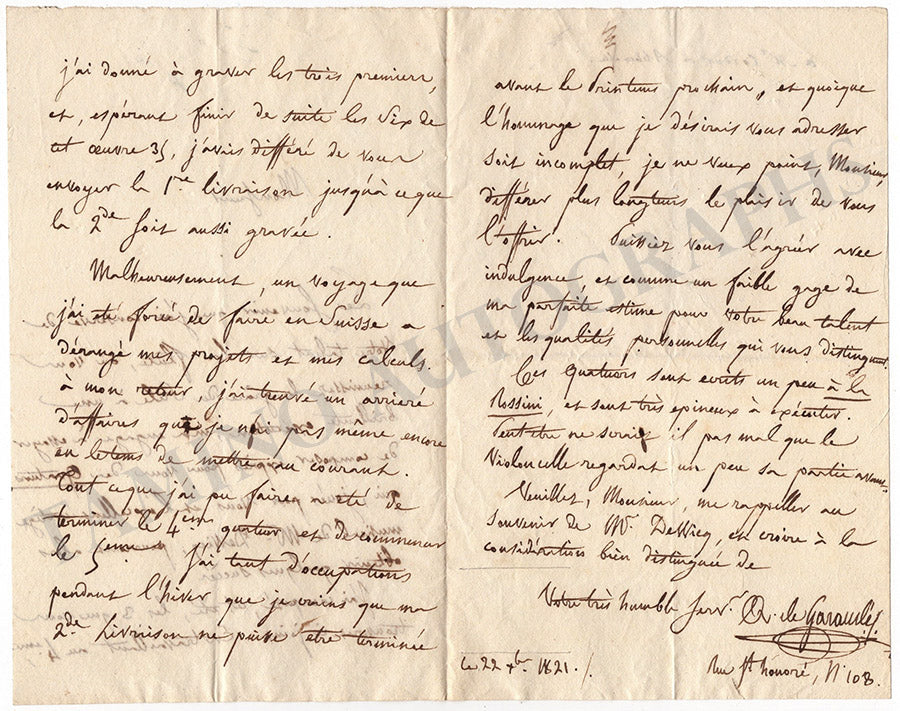 j'ai donné à graver les très premiers,
et, espérant finir de suite les Six de
cet œuvre 35, j'avais différé de vous
envoyer la 1re livraison jusqu'à ce que
la 2de soit aussi gravée.
Malheureusement, un voyage que
j'ai été forcé de faire en Suisse a
dérangé mes projets et mes calculs.
à mon retour, j'ai trouvé un arriéré
d'affaires que je n'ai pas même encore
en le tems de mettre au courant.
Tout ce que j'ai pu faire, a été de
terminer le 4eme quatuor et de commencer
le 5eme. J'ai tant d'occupations
pendant l'hiver que je crains que ma
2de Livraison ne puisse etre terminée
avant le Printems prochain, et quoique
l'hommage que je désirais vous adresser
soit incomplet, je ne veux point, Monsieur,
différer plus longtems le plaisir de vous
l'offrir. Puissiez vous l'agréer avec
indulgence et comme un faible gage de
ma parfaite estime pour votre beau talent
et les qualités personnelles qui vous distinguent.
Ces Quatuors sont ecrits un peu à la
Rossini, et sont très epineux à exécuter.
Peut etre ne serait il pas mal que le
Violoncelle regardat un peu sa partie avant.
Veuillez, Monsieur, me rappeller au
souvenir de Mr. DeWicq, et croire à la
considération bien distinguée de
Votre très humble Serv.r
de Garaudé
Rue St honoré, N° 108.
Ce 22 xbre 1821.
TAMINO AUTOGRAPHS